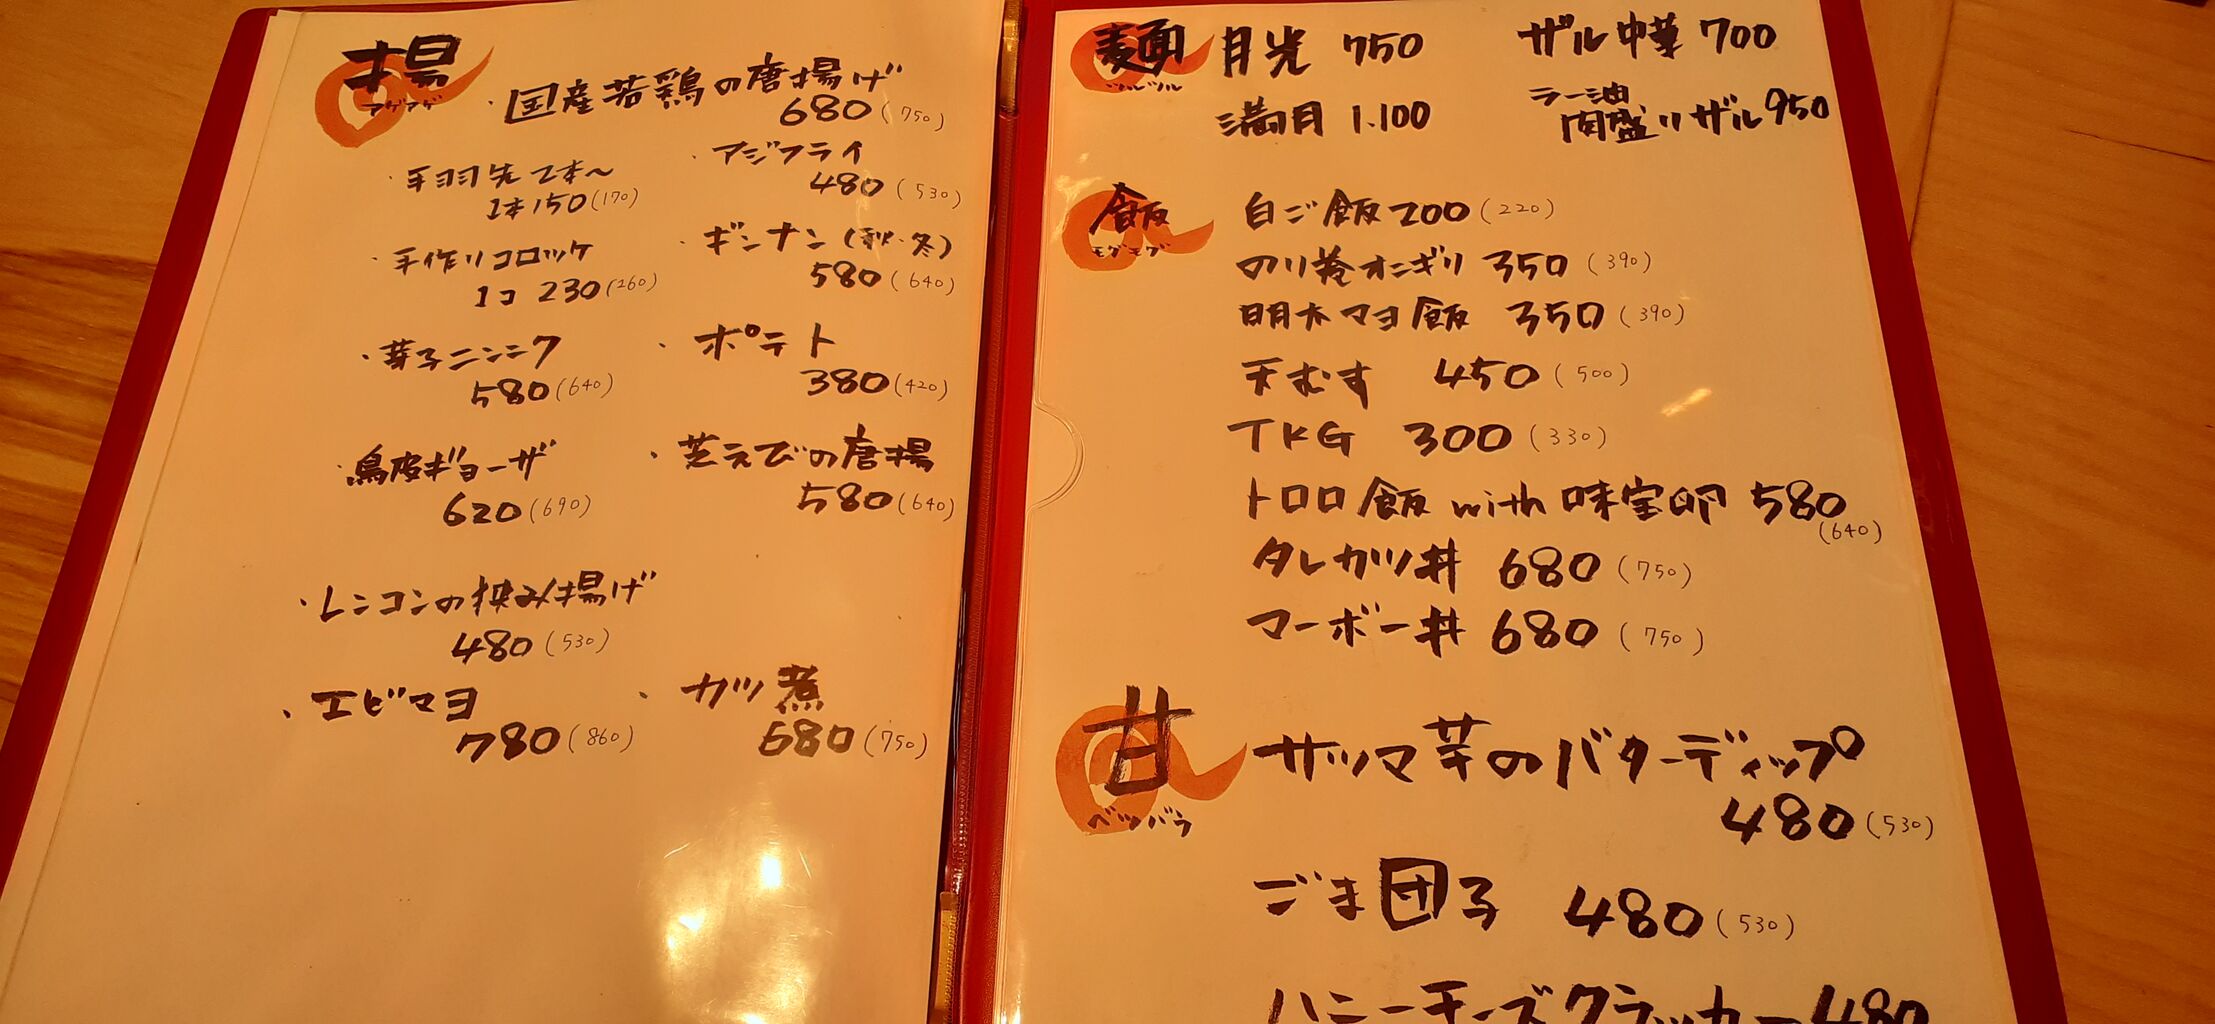 揚
アゲアゲ
・国産若鶏の唐揚げ
680(750)
・手羽先 2本〜
1本150(170)
・アジフライ
480(530)
・手作りコロッケ
1コ 230(260)
・ギンナン(秋・冬)
580(640)
・芽子ニンニク
580(640)
・ポテト
380(420)
・鳥皮ギョーザ
620(690)
・芝えびの唐揚
580(640)
・レンコンの挟み揚げ
480(530)
・エビマヨ
780(860)
・カツ煮
680(750)
麺
ツルツル
月光 750
ザル中華 700
満月 1.100
ラー油
肉盛りザル950
飯
モグモグ
白ご飯200(220)
のり巻オニギリ 350(390)
明太マヨ飯 350(390)
天むす 450(500)
TKG 300(330)
トロロ飯 with 味宝卵 580
(640)
タレカツ丼 680(750)
マーボー丼 680(750)
甘
ベツバラ
サツマ芋のバターディップ
480(530)
ごま団子 480(530)
ハニーチーズクラッカー480